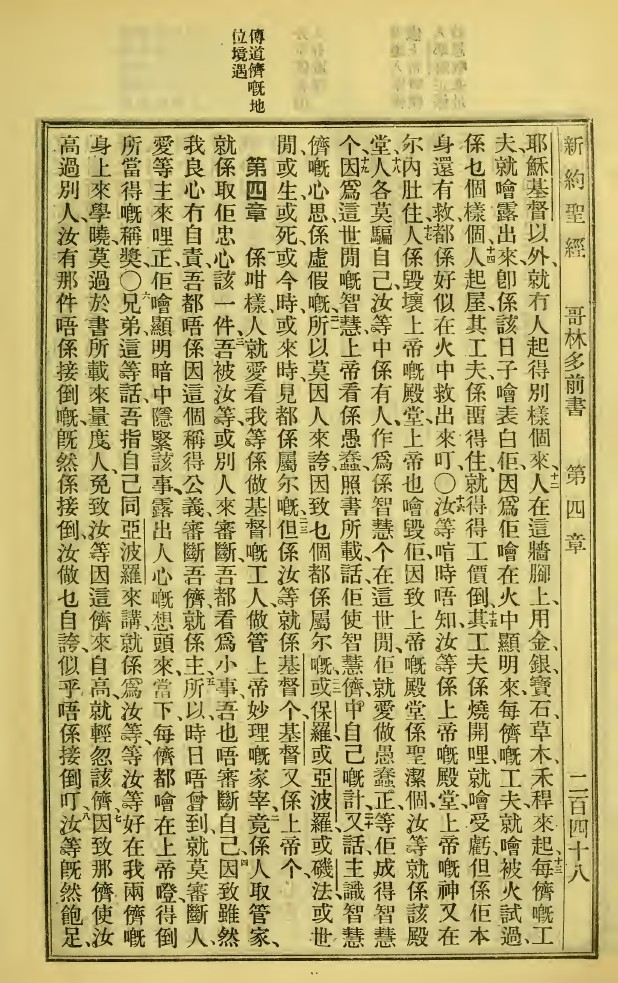 傳道儕嘅地
位境遇
新約聖經 哥林多前書 第四章 二百四十八
耶穌基督以外、就冇人起得別樣個來、十二人在這牆腳上、用金、銀、寶石、草木、禾稈來起、十三每儕嘅工
夫、就噲露出來、卽係該日子噲表白佢、因爲佢噲在火中顯明來、每儕嘅工夫、就噲被火試過、
係乜個樣、十四個人起屋、其工夫係畱得住、就得得工價倒、十五其工夫係燒開哩、就噲受虧、但係佢本
身還有救、都係好似在火中救出來叮、〇十六汝等啱時唔知汝等係上帝嘅殿堂、上帝嘅神、又在
尔內肚住、十七人係毀壞上帝嘅殿堂、上帝也噲毀佢、因致上帝嘅殿堂係聖潔個、汝等就係該殿
堂、十八人各莫騙自己、汝等中係有人、作爲係智慧个、在這世間、佢就愛做愚蠢、正等佢成得智慧
个、十九因爲這世間嘅智慧、上帝看係愚蠢、照書所載、話佢使智慧儕中自己嘅計、二十又話、主識智慧
儕嘅心思、係虛假嘅、二一所以莫因人來誇、因致乜個都係屬尔嘅、二二或保羅、或亞波羅、或磯法、或世
間、或生、或死、或今時、或來時、見都係屬尔嘅、二三但係汝等就係基督个、基督又係上帝个、
第四章 一係咁樣、人就愛看我等係做基督嘅工人、做管上帝妙理嘅家宰、二竟係人取管家、
就係取佢忠心該一件、三吾被汝等、或別人來審斷、吾都看爲小事、吾也唔審斷自己、四因致雖然
我良心冇自責、吾都唔係因這個稱得公義、審斷吾儕、就係主、五所以時日唔曾到、就莫審斷人、
愛等主來哩正、佢噲顯明暗中隱緊該事、露出人心嘅想頭來、當下每儕都噲在上帝嶝、得倒
所當得嘅稱獎、〇六兄弟、這等話、吾指自己同亞波羅來講、就係爲汝等、等汝等好在我兩儕嘅
身上來學曉、莫過於書所載來量度人、免致汝等因這儕來自高、就輕忽該儕、七因致那儕使汝
高過別人、汝有那件唔係接倒嘅、旣然係接倒、汝做乜自誇、似乎唔係接倒叮、八汝等旣然飽足、